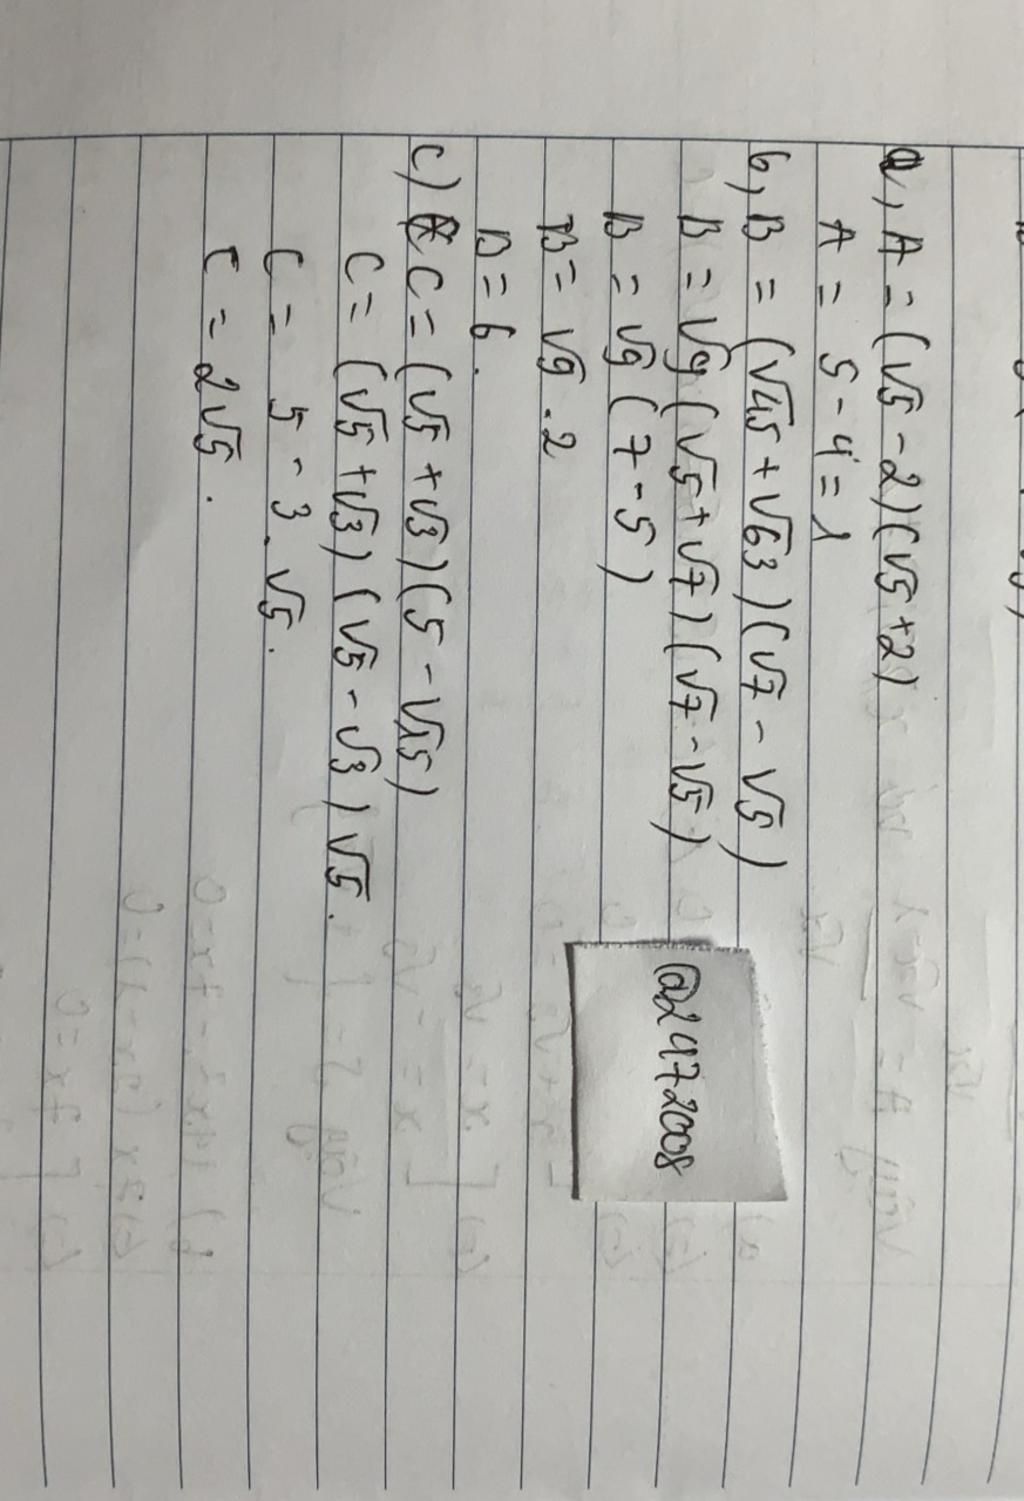 a, A = (√5 - 2)(√5 + 2)
A = 5 - 4 = 1
b, B = (√45 + √63)(√7 - √5)
B = √9 (√5 + √7)(√7 - √5)
B = √9 (7 - 5)
B = √9 . 2
B = 6.
c) C = (√5 + √3)(5 - √15)
C = (√5 + √3)(√5 - √3)√5.
C = 5 - 3 . √5.
C = 2√5.
@2472008